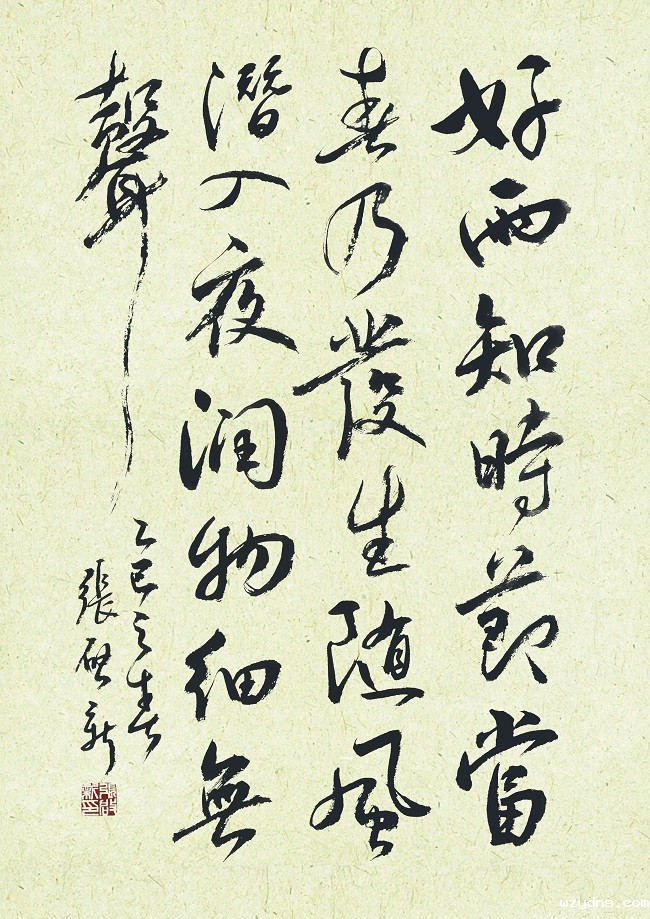 好雨知時節當
春乃發生随風
潛入夜润物细無
聲
乙巳之春
張啟新
張啟新印
wzydns.com